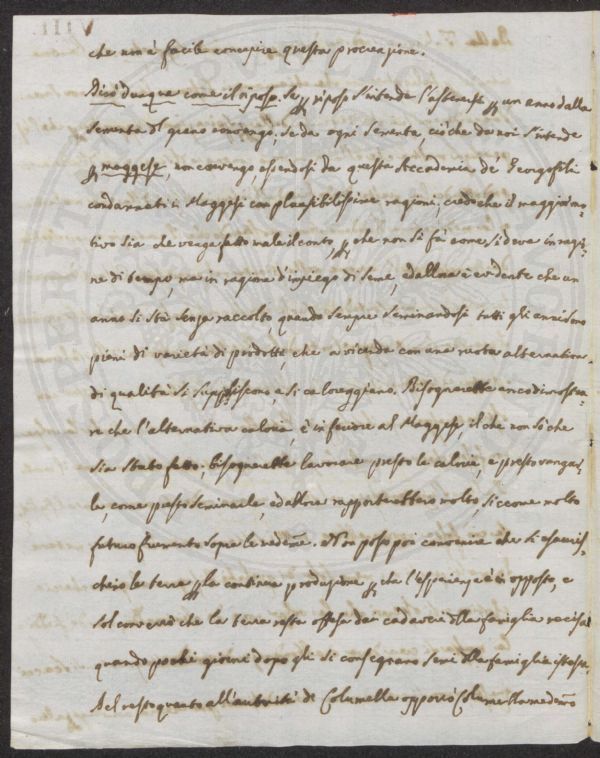 che non è facile concepire questa procreazione.
Dirò dunque come il riposo. Se p riposo s'intende l'astenersi p un anno dalla
sementa di grano convengo, se da ogni sementa, ciò che da noi s'intende
p maggese, non convengo, essendosi da questa Accademia de' Georgofili
condannati i Maggesi con plausibilissime ragioni, credo che il maggior mo-
tivo sia che venga fatto male il conto, p che non si fà come si deve in ragio-
ne di tempo, ma in ragione d'impiego di seme, ed allora è evidente che un
anno si stà senza raccolto, quando sempre seminandosi tutti gli anni sono
pieni di varietà di prodotti, che a vicenda con una ruota alternativa
di qualità si suppliscono, e si caloreggiano. Bisognerebbe anco dimostra-
re che l'alternativa caloria, è inferiore al Maggese, il che non sò che
sia stato fatto; bisognerebbe lavorare presto le calorie, e presto vangar-
le, come presto seminarle, ed allora rapporterebbero molto, siccome molto
futuro frumento sopra le medeme. Non posso poi convenire che si esauris-
chino le terre p la continua produzione p che l'esperienza è in opposto, e
sol converrò che la terra resta offesa dai cadaveri della famiglia recisa
quando pochi giorni dopo gli si consegnano semi della famiglia istessa.
Nel resto quanto all'autorità di Columella opporrò Columella medemo